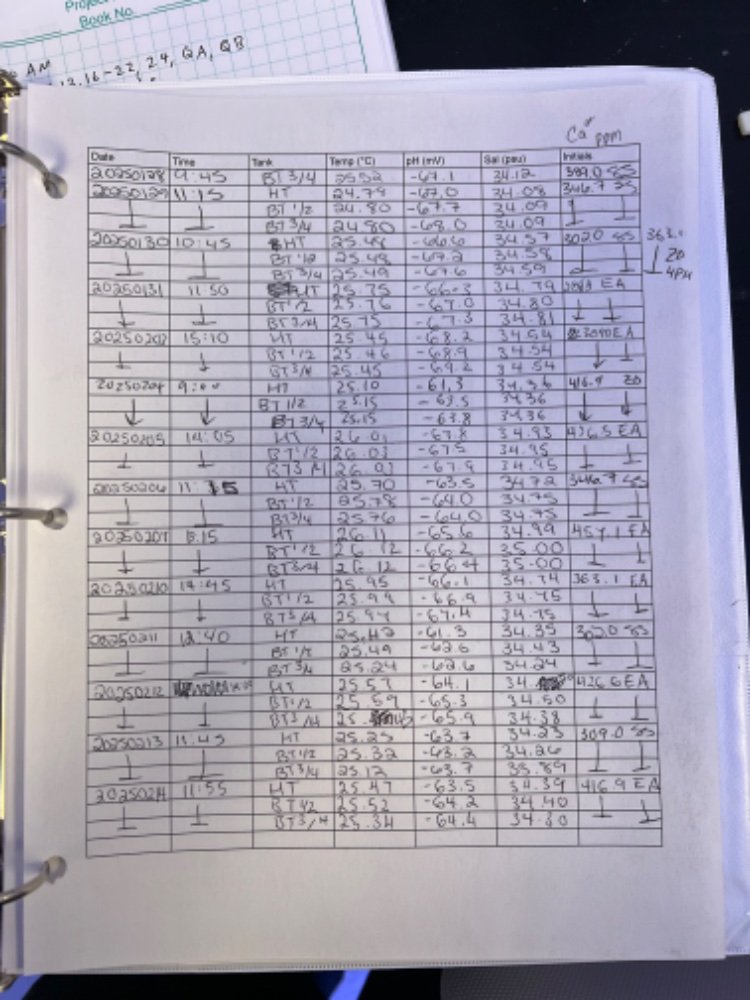 Project
Book No.
AM
12, 16-22, 24, QA, QB
Ca ppm
Date Time Tank Temp (°C) pH (mV) Sal (psu) Initials
20250128 9:45 BT 3/4 25.52 -67.1 34.12 389.0 SS
20250129 11:15 HT 24.79 -67.0 34.08 346.7 SS
BT 1/2 24.80 -67.7 34.09
BT 3/4 24.80 -68.0 34.09
20250130 10:45 HT 25.48 -66.6 34.57 302.0 SS 363.
BT 1/2 25.48 -67.2 34.58 ZO
BT 3/4 25.49 -67.6 34.59 4PM
20250131 11:50 HT 25.75 -66.3 34.79 EA
BT 1/2 25.76 -67.0 34.80
BT 3/4 25.75 -67.3 34.81
15:10 HT 25.45 -68.2 34.54 EA
BT 1/2 25.46 -68.9 34.54
BT 3/4 25.45 -69.2 34.54
20250204 HT 25.10 -61.3 34.36 416.9 ZO
BT 1/2 25.15 -63.5 34.36
BT 3/4 25.15 -63.8 34.36
20250205 14:05 HT 26.01 -67.8 34.93 436.5 EA
BT 1/2 26.03 -67.5 34.95
BT 3/4 26.03 -67.9 34.95
20250206 11:15 HT 25.70 -63.5 34.72 346.7 SS
BT 1/2 25.78 -64.0 34.75
BT 3/4 25.76 -64.0 34.75
20250207 HT 26.11 -65.6 34.99 457.1 EA
BT 1/2 26.12 -66.2 35.00
BT 3/4 26.12 -66.4 35.00
20250210 14:45 HT 25.95 -66.1 34.74 363.1 EA
BT 1/2 25.99 -66.9 34.75
BT 3/4 25.97 -67.4 34.75
20250211 12:40 HT 25.42 -61.3 34.35 302.0 SS
BT 1/2 25.49 -62.6 34.43
BT 3/4 25.24 -62.6 34.24
20250212 HT 25.57 -64.1 34. 426.6 EA
BT 1/2 25.59 -65.3 34.50
BT 3/4 25. -65.9 34.38
20250213 11:45 HT 25.25 -63.7 34.23 309.0 SS
BT 1/2 25.32 -63.2 34.26
BT 3/4 25.12 -63.7 33.89
20250214 11:55 HT 25.47 -63.5 34.39 416.9 EA
BT 1/2 25.52 -64.2 34.40
BT 3/4 25.34 -64.4 34.30